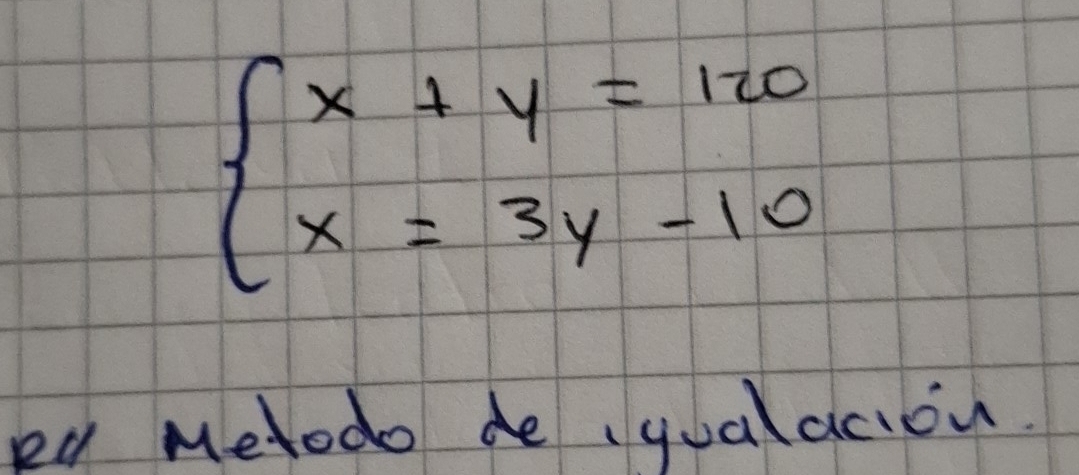 x + y = 120
x = 3y - 10
Metodo de igualación.